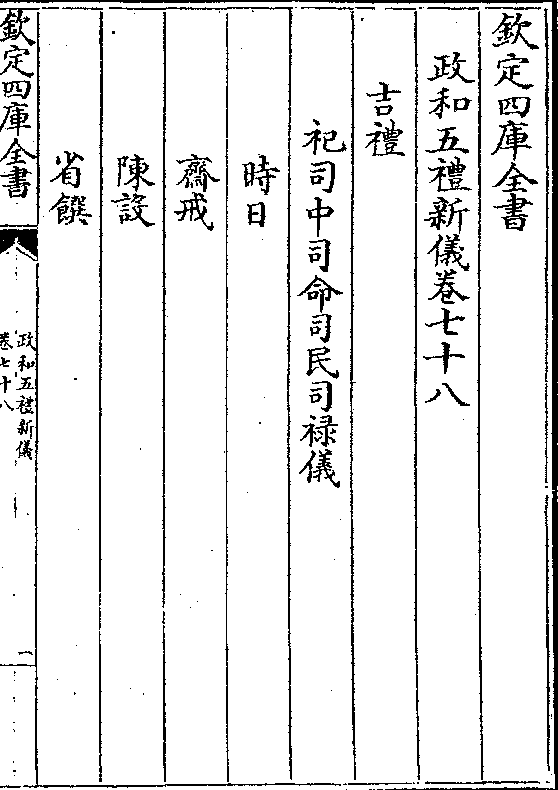 欽定四庫全書
政和五禮新儀卷七十八
吉禮
祀司中司命司民司禄儀
時日
齋戒
陳設
省饌
欽定四庫全書
政和五禮新儀
卷七十八
一